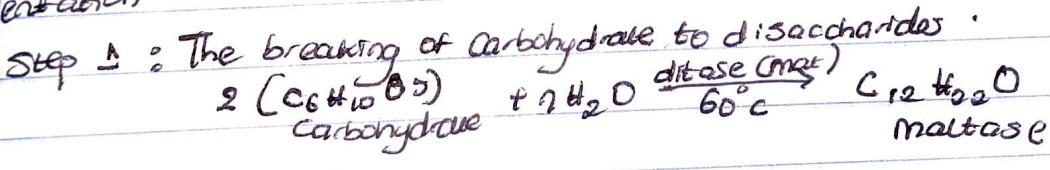 Step 1 : The breaking of Carbohydrate to disaccharides .
2 (C6H10O5) + nH2O ditase (mat) 60°C C12H22O
Carbohydrate maltase